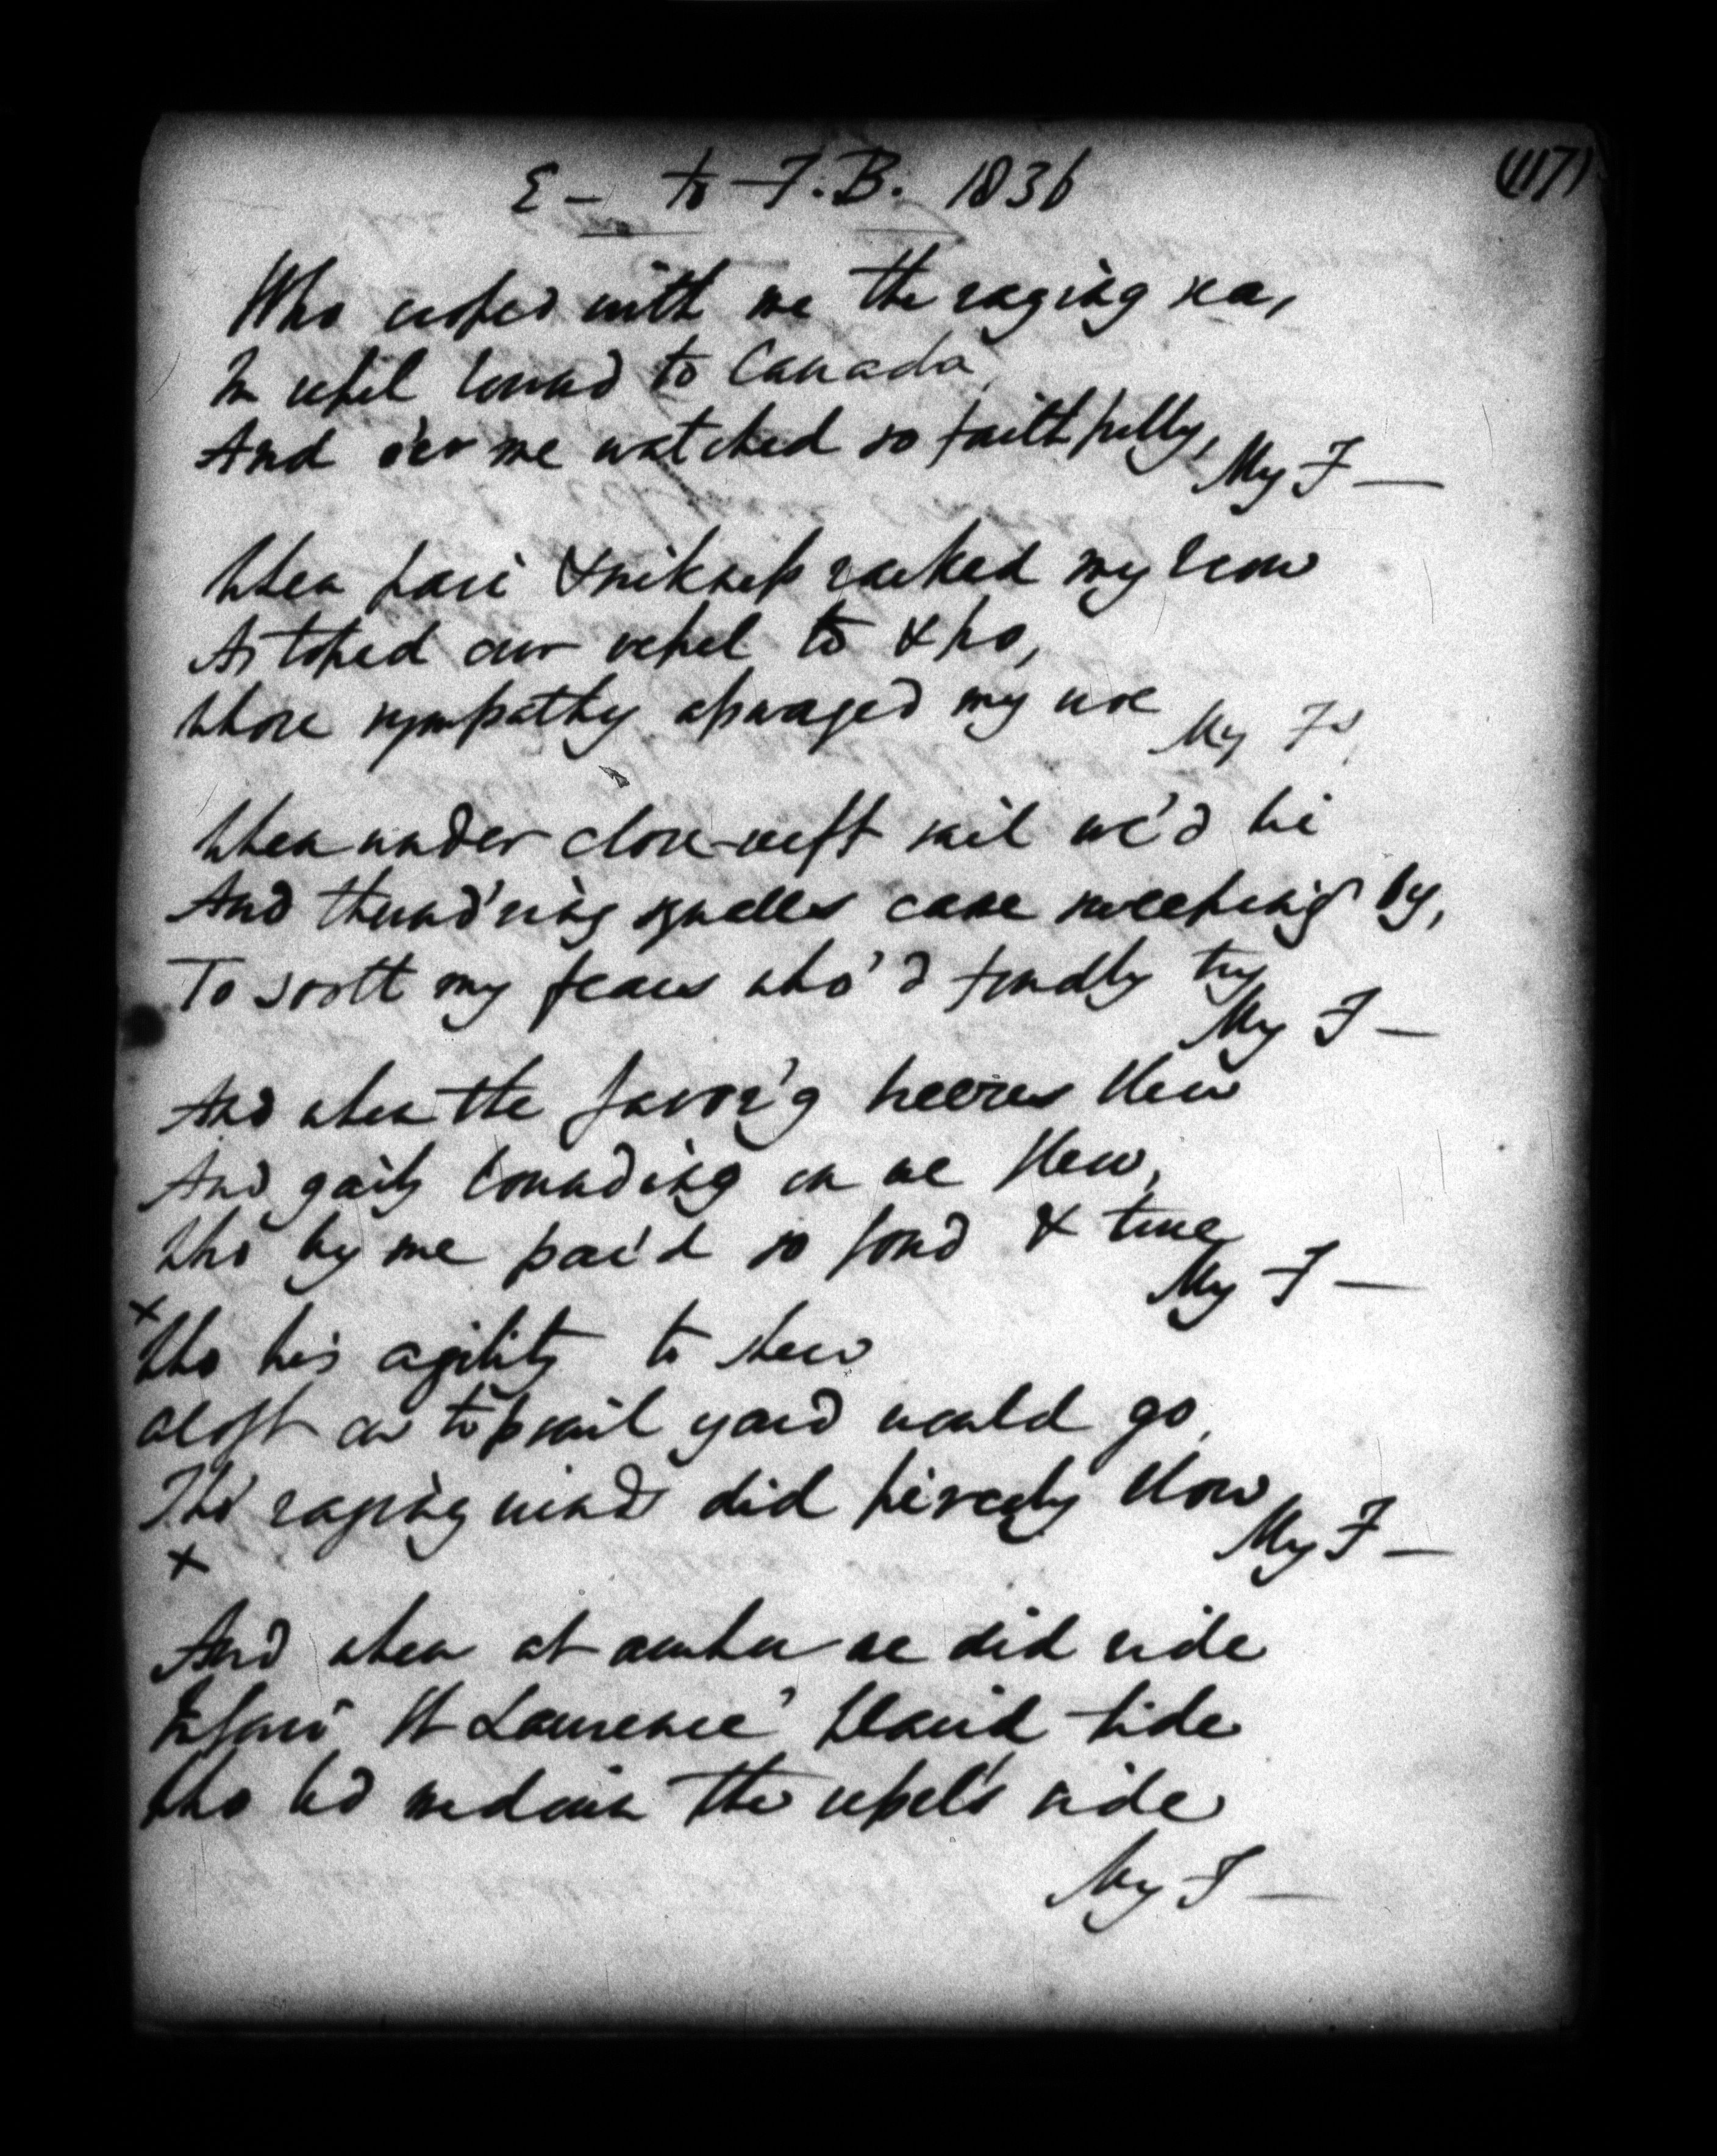 E – to F. B. 1836
(117)
Who crossed with me the raging sea,
In vessel bound to Canada,
And o'er me watched so faithfully,
My F —
When pain & sickness racked my brow
As tossed our vessel to & fro,
Whose sympathy assuaged my woe
My Fd
When under close-reeft sail we'd lie
And thund'ring squalls came sweeping by,
To sooth my fears who'd fondly try
My F —
And when the favor'g breezes blew
And gaily bounding on we flew,
Who by me pac'd so fond & true
My F —
x
Who his agility to shew
aloft on topsail yard would go,
Tho' raging winds did fiercely blow
My F —
x
And when at anchor we did ride
In fair St Lawrence' placid tide
Who led me down the vessel's side
My F —